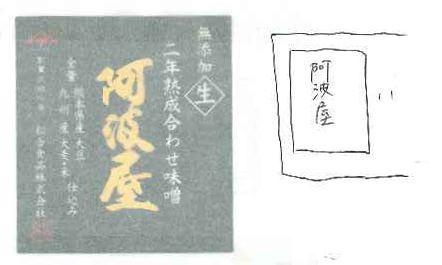 無添加
生
二年熟成合わせ味噌
阿波屋
全量 熊本県産大豆
九州産大麦・米 仕込み
松合食品株式会社
阿波屋